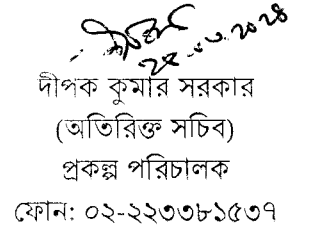 দীপক কুমার সরকার
(অতিরিক্ত সচিব)
প্রকল্প পরিচালক
ফোন: ০২-২২৩৩৮১৫৩৭